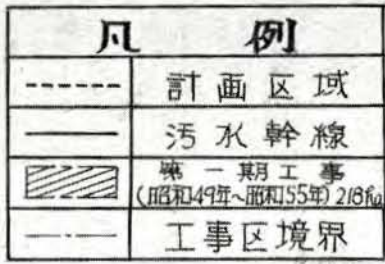 凡例
計画区域
汚水幹線
第一期工事
(昭和49年~昭和55年)218ha
工事区境界